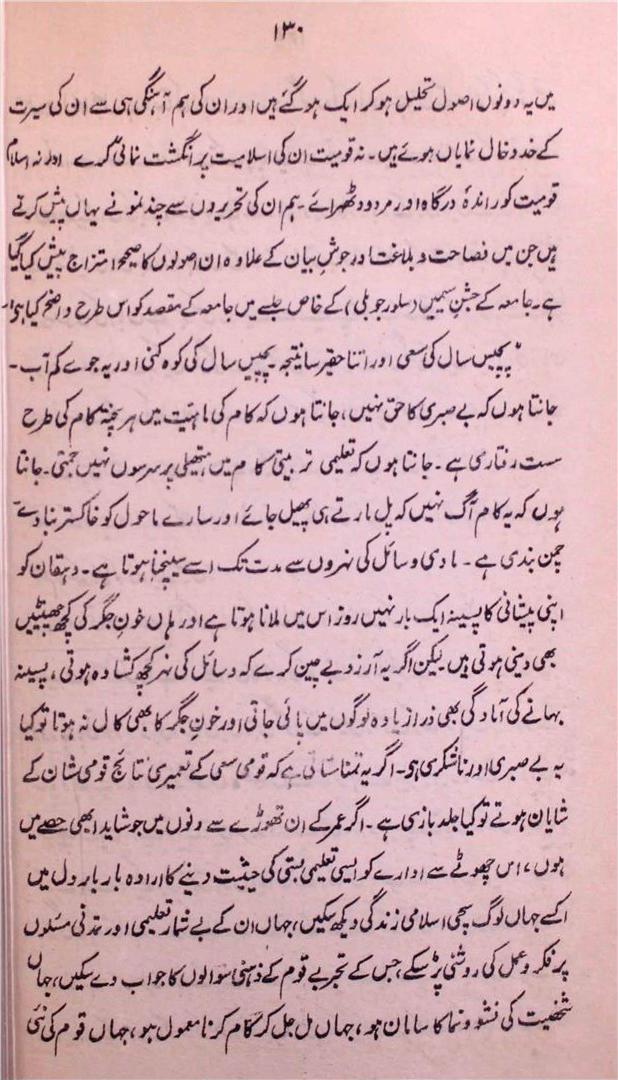 ۱۳۰
میں یہ دونوں اصول تحلیل ہو کر ایک ہو گئے ہیں اور ان کی ہم آہنگی ہی سے ان کی سیرت
کے خدوخال نمایاں ہوئے ہیں۔ نہ قومیت ان کی اسلامیت پر انگشت نمائی کرے اور نہ اسلام
قومیت کو راندۂ درگاہ اور مردود ٹھہرائے۔ ہم ان کی تحریروں سے چند نمونے یہاں پیش کرتے
ہیں جن میں فصاحت و بلاغت اور جوشِ بیان کے علاوہ ان اصولوں کا صحیح امتزاج پیش کیا گیا
ہے۔ جامعہ کے جشنِ سیمیں (سلور جوبلی) کے خاص جلسے میں جامعہ کے مقصد کو اس طرح واضح کیا ہے۔
"پچیس سال کی سعی اور اتنا حقیر سا نتیجہ۔ پچیس سال کی کوہ کنی اور یہ جوے کم آب۔
جانتا ہوں کہ بے صبری کا حق نہیں، جانتا ہوں کہ کام کی ماہیت میں ہر پختہ کام کی طرح
سست رفتاری ہے۔ جانتا ہوں کہ تعلیمی تربیتی کام میں ہتھیلی پر سرسوں نہیں جمتی۔ جانتا
ہوں کہ یہ کام آگ نہیں کہ پل مارتے ہی پھیل جائے اور سارے ماحول کو خاکستر بنا دے
چمن بندی ہے۔ مادی وسائل کی نہروں سے مدت تک اسے سینچنا ہوتا ہے۔ دہقان کو
اپنی پیشانی کا پسینہ ایک بار نہیں روز اس میں ملانا ہوتا ہے اور ہاں خونِ جگر کی کچھ چھینٹیں
بھی دینی ہوتی ہیں لیکن اگر یہ آرزو بے چین کرے کہ وسائل کی نہر کچھ کشادہ ہوتی، پسینہ
بہانے کی آمادگی بھی ذرا زیادہ لوگوں میں پائی جاتی اور خونِ جگر کا بھی کال نہ ہوتا تو کیا
یہ بے صبری اور ناشکری ہو۔ اگر یہ تمنا ستاتی ہے کہ قومی سعی کے تعمیری نتائج قومی شان کے
شایان ہوتے تو کیا جلد بازی ہے۔ اگر عمر کے ان تھوڑے سے دنوں میں جو شاید ابھی حصے میں
ہوں، اس چھوٹے سے ادارے کو ایسی تعلیمی بستی کی حیثیت دینے کا ارادہ بار بار دل میں
اکسے جہاں لوگ سچی اسلامی زندگی دیکھ سکیں، جہاں ان کے بے شمار تعلیمی اور تمدنی مسئلوں
پر فکر و عمل کی روشنی پڑ سکے، جس کے تجربے قوم کے ذہنی سوالوں کا جواب دے سکیں، جہاں
شخصیت کی نشوونما کا سامان ہو، جہاں مل جل کر کام کرنا معمول ہو، جہاں قوم کی نئی